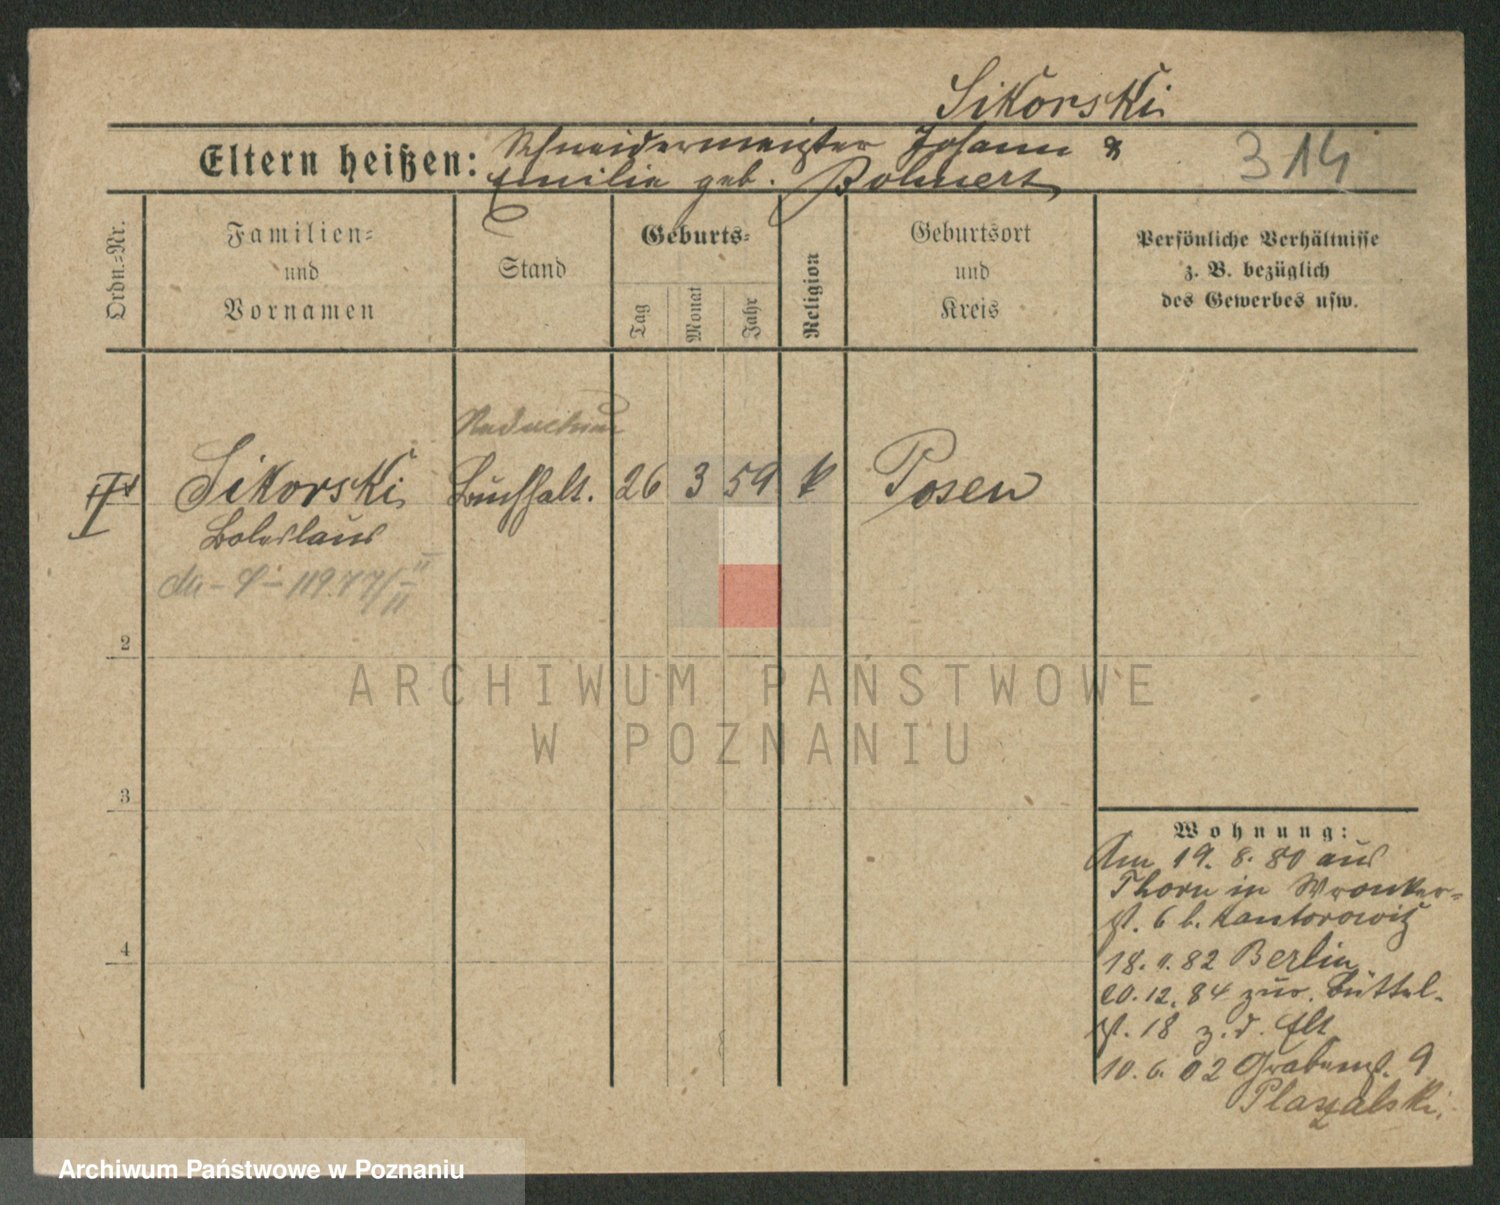 Sikorski
Eltern heißen: Schneidermeister Johann &
Emilie geb. Bohnert
314
Ordn.-Nr.
Familien-
und
Vornamen
Stand
Geburts-
Tag
Monat
Jahr
Religion
Geburtsort
und
Kreis
Persönliche Verhältnisse
z. B. bezüglich
des Gewerbes usw.
Sikorski Buchhalt. 26 3 59 k Posen
Boleslaus
2
3
4
Wohnung:
Am 19. 8. 80 aus
Thorn in Wronker-
st. 6 b. Kantorowitz
18. 82 Berlin
20. 12. 84 zur. Büttel-
st. 18 z. d. Elt
10. 6. 02 Grabenst. 9
ARCHIWUM PAŃSTWOWE
W POZNANIU
Archiwum Państwowe w Poznaniu